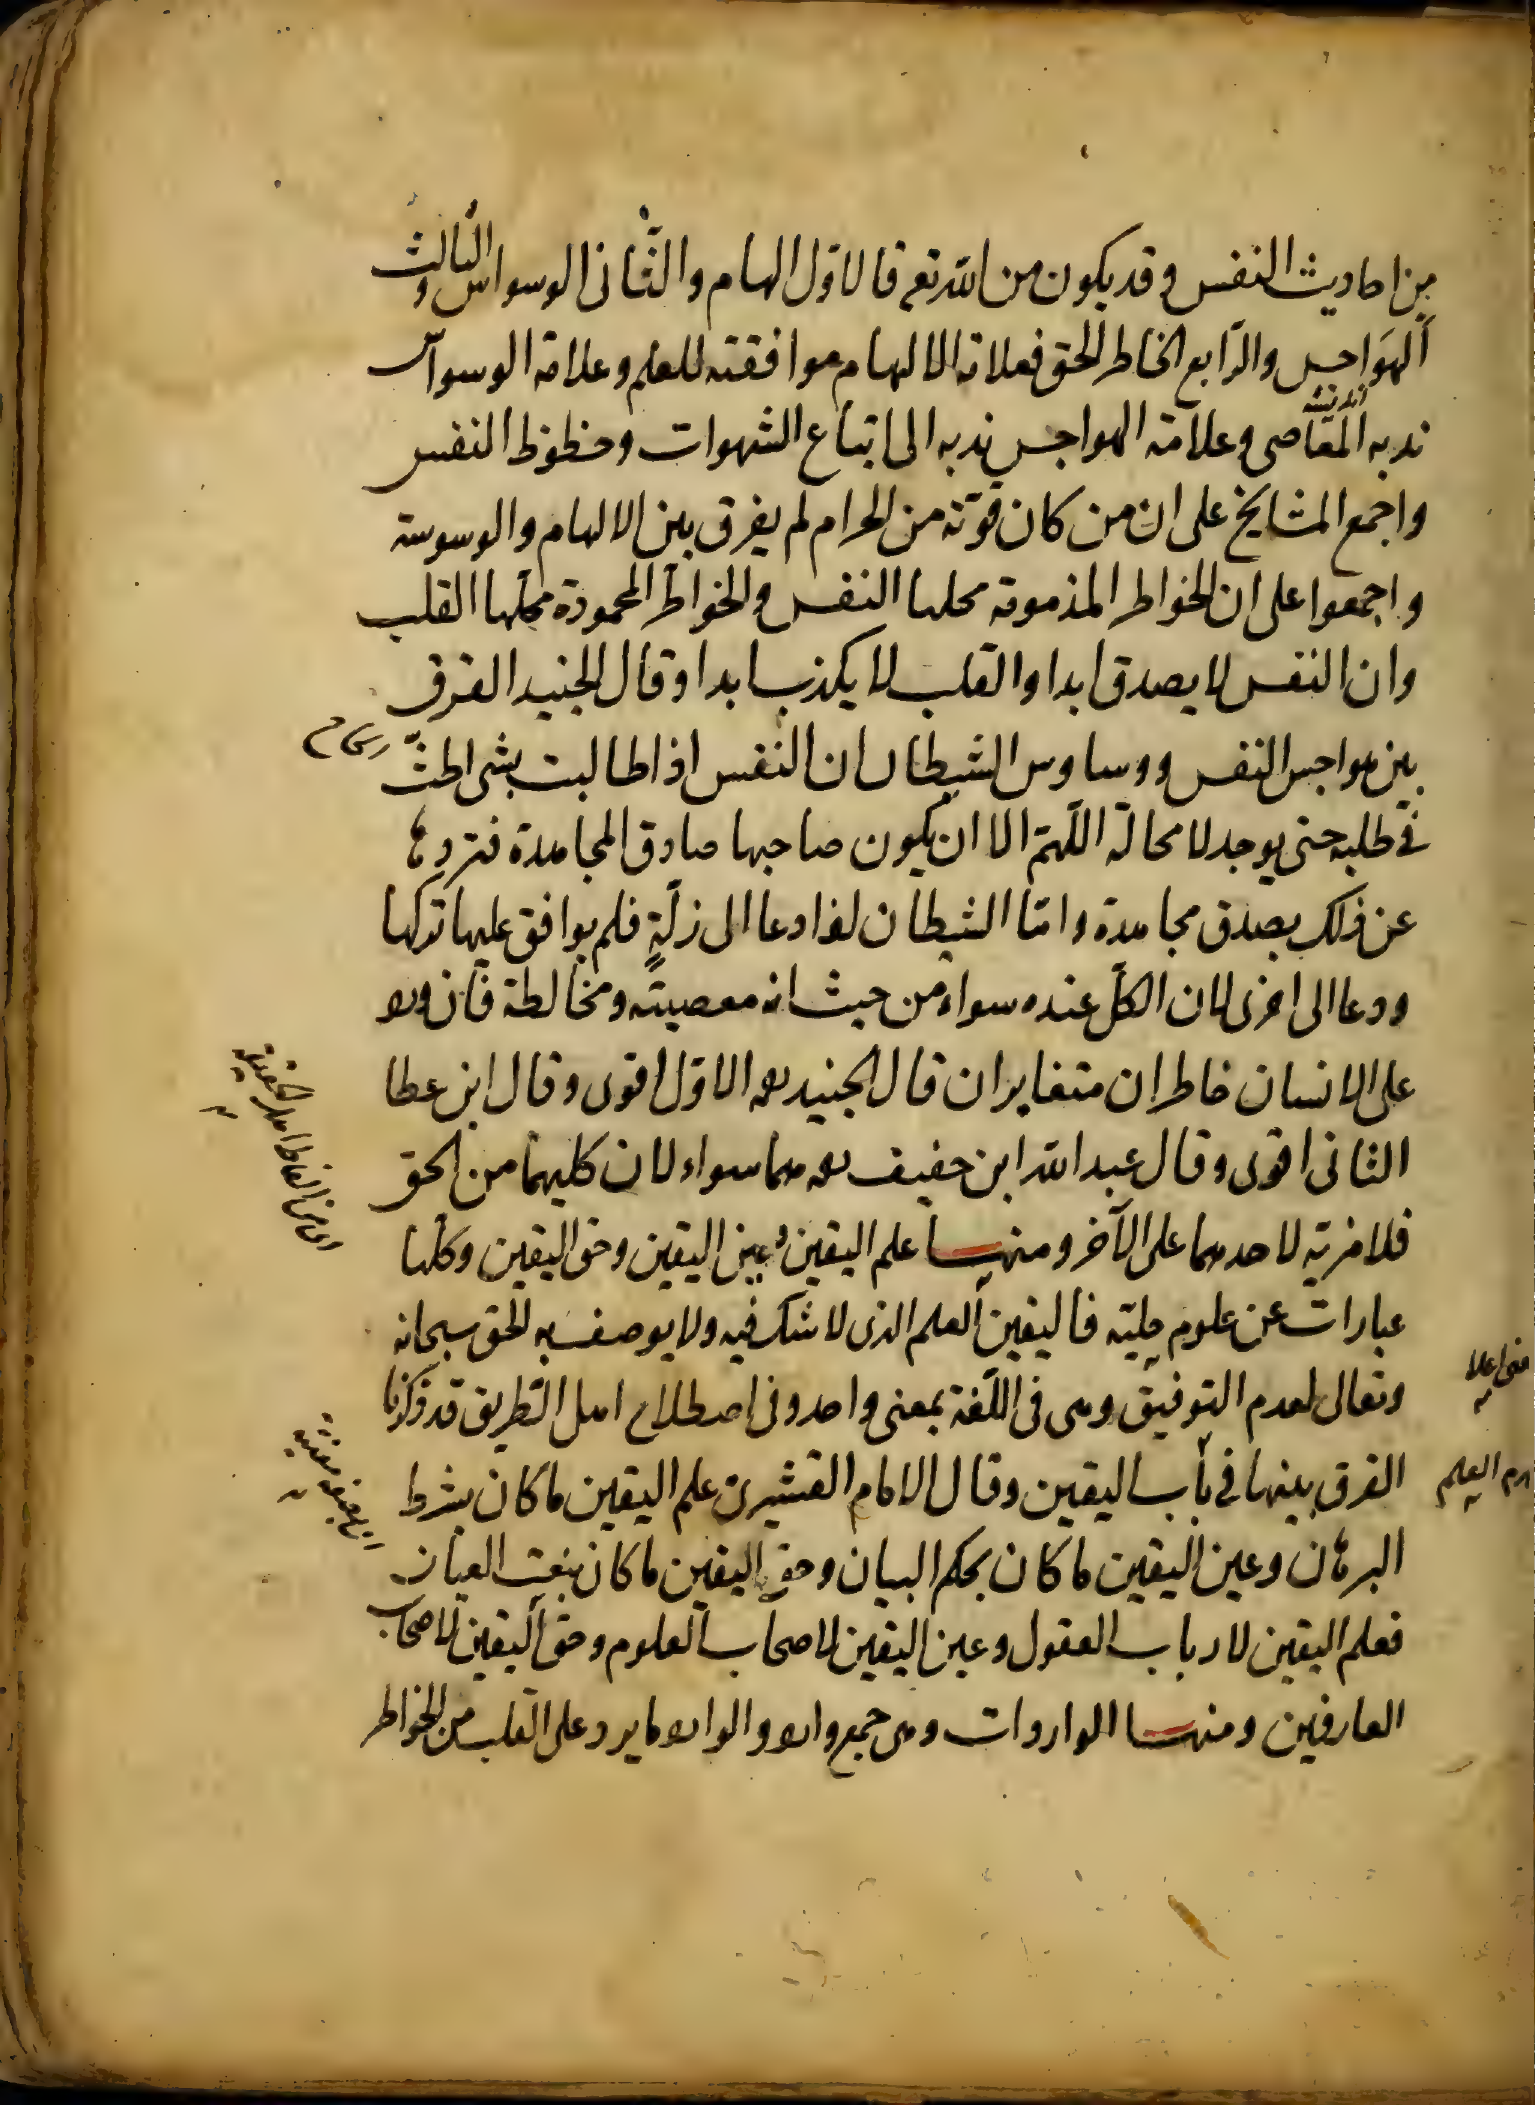 من احاديث النفس وقد يكون من الله تع فالاول الهام والثانى الوسواس والثالث
الهواجس والرابع الخاطر الحق فعلامة الالهام موافقته للعلم وعلامة الوسواس
ندبه المعاصى وعلامة الهواجس ندبه الى اتباع الشهوات وحظوظ النفس
واجمع المشايخ على ان من كان قوته من الحرام لم يفرق بين الالهام والوسوسة
واجمعوا على ان الخواطر المذمومة محلها النفس والخواطر المحمودة محلها القلب
وان النفس لا يصدق ابدا والقلب لا يكذب ابدا وقال الجنيد الفرق
بين هواجس النفس ووساوس الشيطان ان النفس اذا طالبت بشى الحث
فى طلبه حتى يوجد لا محالة اللهم الا ان يكون صاحبها صادق المجاهدة فتردها
عن ذلك بصدق مجاهدة واما الشيطان اذا دعا الى زلة فلم يوافق عليها تركها
ودعا الى اخرى لان الكل عنده سواء من حيث انه معصيته ومخالطة فان ورد
على الانسان خاطران متغايران قال الجنيد رحمه الاول اقوى وقال ابن عطا
الثانى اقوى وقال عبد الله ابن حفيف رحمه هما سواء لان كليهما من الحق
فلا مزية لاحدهما على الآخر ومنها علم اليقين وعين اليقين وحق اليقين وكلها
عبارات عن علوم جلية فاليقين العلم الذى لا شك فيه ولا يوصف به الحق سبحانه
وتعالى لعدم التوفيق وهى فى اللغة بمعنى واحد وفى اصطلاح اهل الطريق قد ذكرنا
الفرق بينها فى باب اليقين وقال الامام القشيرى علم اليقين ما كان بشرط
البرهان وعين اليقين ما كان بحكم البيان وحق اليقين ما كان بنعت العيان
فعلم اليقين لارباب العقول وعين اليقين لاصحاب العلوم وحق اليقين لاصحاب
العارفين ومنها الواردات وهى جمع وارد والوارد ما يرد على القلب من الخواطر